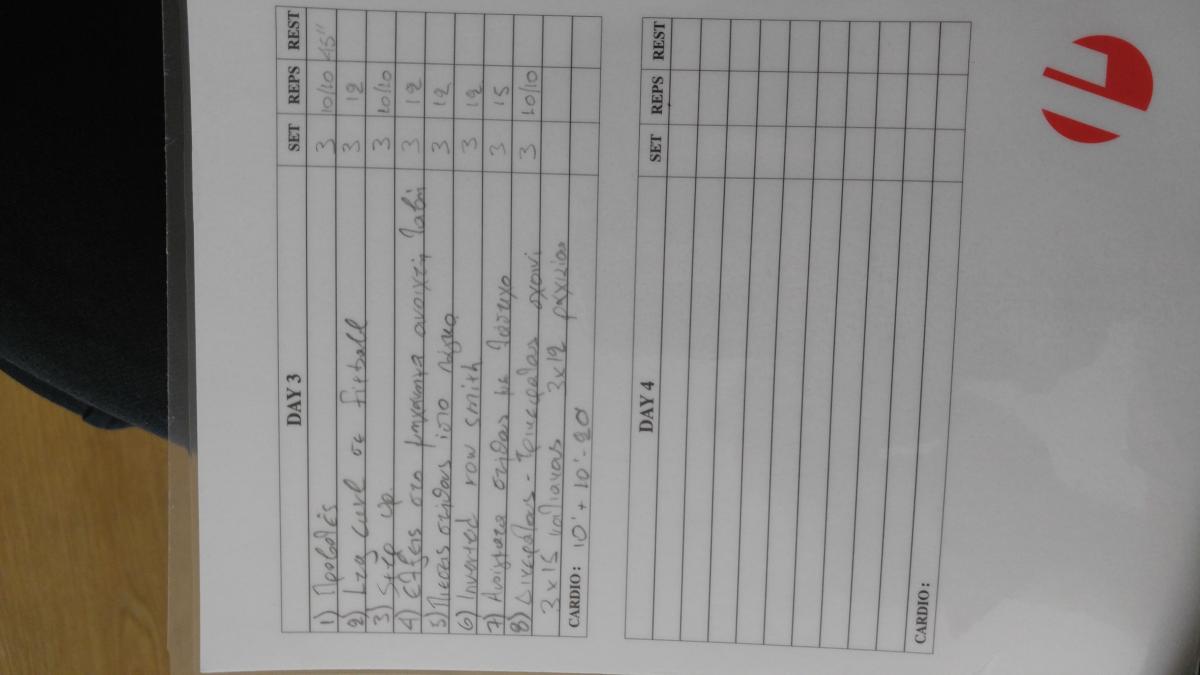 DAY 3 SET REPS REST
1) Προβολές 3 10/10 45"
2) Leg curl σε fitball 3 12
3) Step up 3 10/10
4) έλξεις στο μηχάνημα ανοιχτή λαβή 3 12
5) Πιεσεις στήθους ίσιο πάγκο 3 12
6) Inverted row smith 3 12
7) Ανοίγματα στήθους με λάστιχο 3 15
8) Δικεφάλος - Τρικεφάλος σχοινί 3 10/10
3x15 κοιλιακούς 3x12 ραχιαίους
CARDIO: 10' + 10' - 20
DAY 4 SET REPS REST
CARDIO: